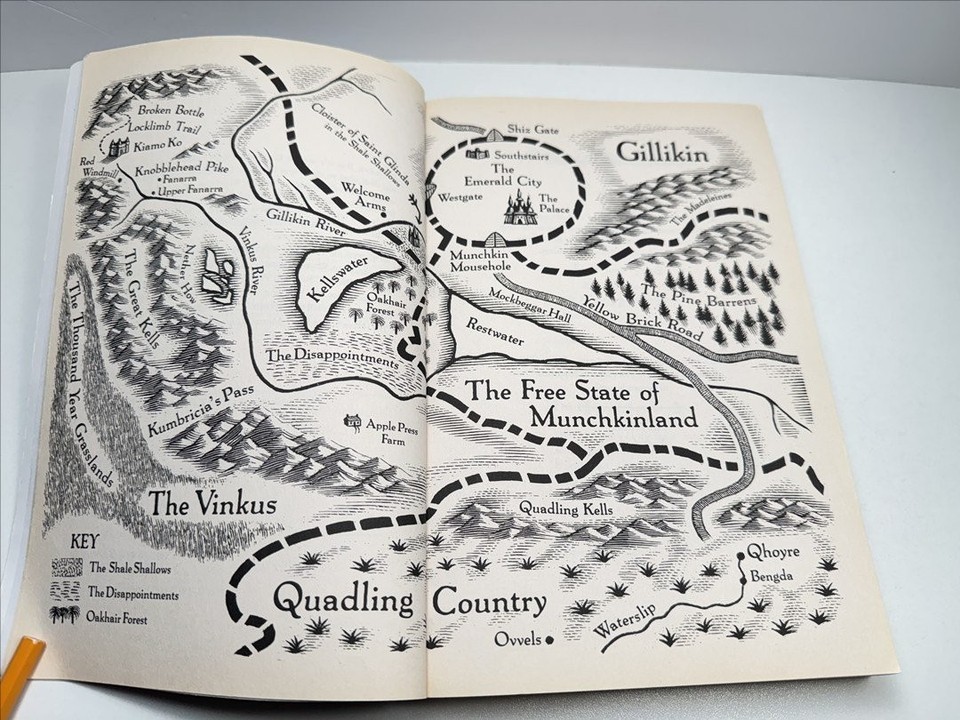 Broken Bottle
Locklimb Trail
Kiamo Ko
Red
Windmill
Knobblehead Pike
Fanarra
Upper Fanarra
Cloister of Saint Glinda
in the Shale Shallows
Welcome
Arms
Gillikin River
Vinkus River
Nether How
The Great Kells
The Thousand Year Grasslands
Kellswater
Oakhair
Forest
The Disappointments
Kumbricia's Pass
Apple Press
Farm
The Vinkus
KEY
The Shale Shallows
The Disappointments
Oakhair Forest
Shiz Gate
Southstairs
The
Emerald City
Westgate
The
Palace
Munchkin
Mousehole
Gillikin
The Madeleines
The Pine Barrens
Yellow Brick Road
Mockbeggar Hall
Restwater
The Free State of
Munchkinland
Quadling Kells
Quadling Country
Qhoyre
Bengda
Waterslip
Ovvels